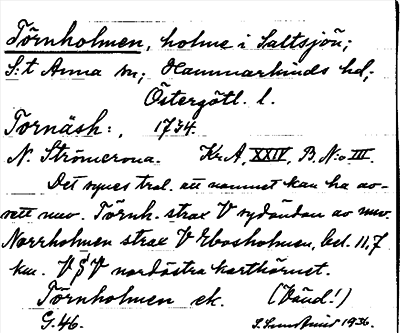 Törnholmen, holme i Saltsjön;
S:t Anna sn; Hammarkinds hd;
Östergötl. l.
Tornäsh:, 1734.
N. Strömcrona. Kr. A, XXIV, B, N:o III.
Det synes trol. att namnet kan ha av-
sett nuv. Törnh. strax V sydändan av nuv.
Norrholmen strax V Ebosholmen, bel. 11,7
km. V S V nordöstra karthörnet.
Törnholmen ek. (Vänd!)
G. 46. 1936.